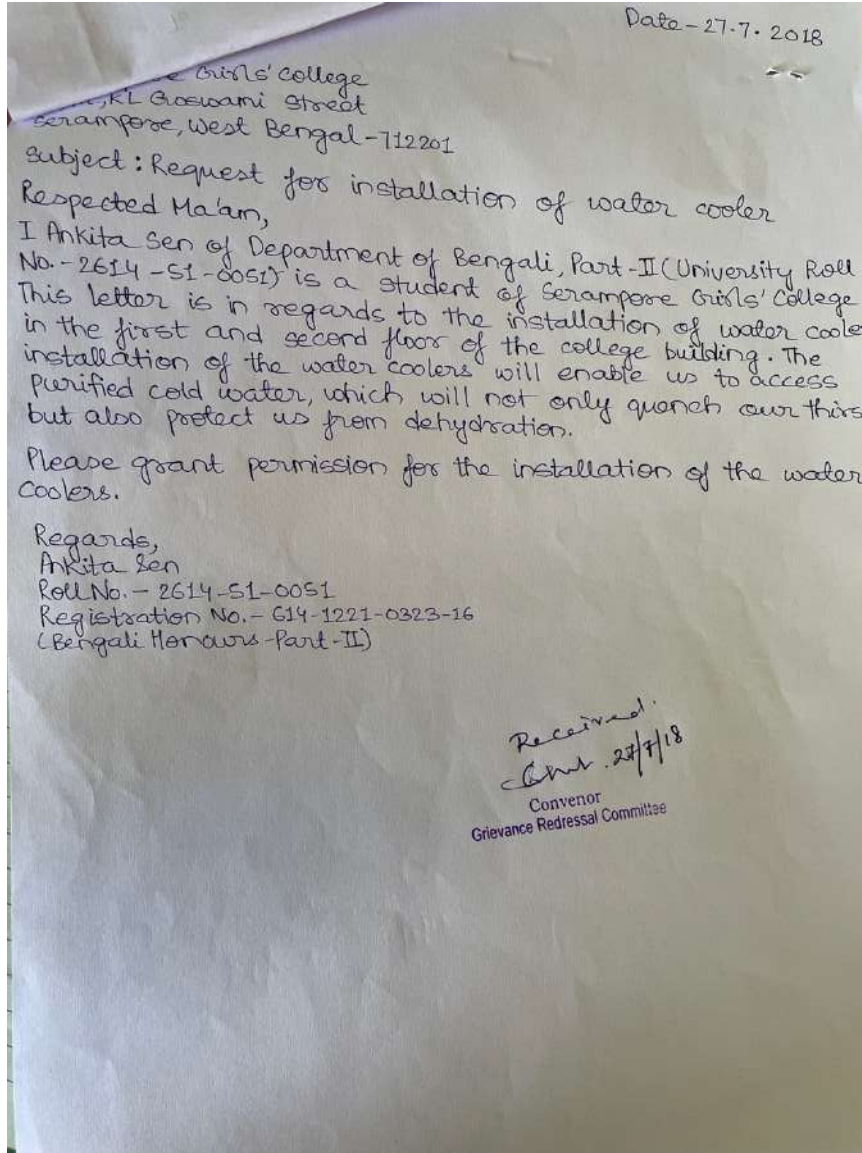 Date-27.7.2018
Girls' College
KL Goswami Street
Serampore, West Bengal-712201
Subject: Request for installation of water cooler
Respected Ma'am,
I Ankita Sen of Department of Bengali, Part-II (University Roll
No.-2614-S1-0051) is a student of Serampore Girls' College
This letter is in regards to the installation of water coole
in the first and second floor of the college building. The
installation of the water coolers will enable us to access
purified cold water, which will not only quench our thirs
but also protect us from dehydration.
Please grant permission for the installation of the water
coolers.
Regards,
Ankita Sen
Roll No.- 2614-S1-0051
Registration No.- 614-1221-0323-16
(Bengali Honours-Part-II)
Received.
27/7/18
Convenor
Grievance Redressal Committee